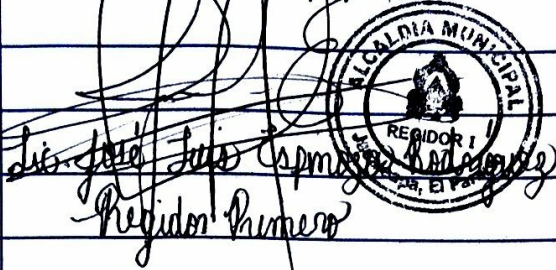 ALCALDIA MUNICIPAL
REGIDOR I
El Par
Lic. José Luis Espinoza Rodriguez
Regidor Primero